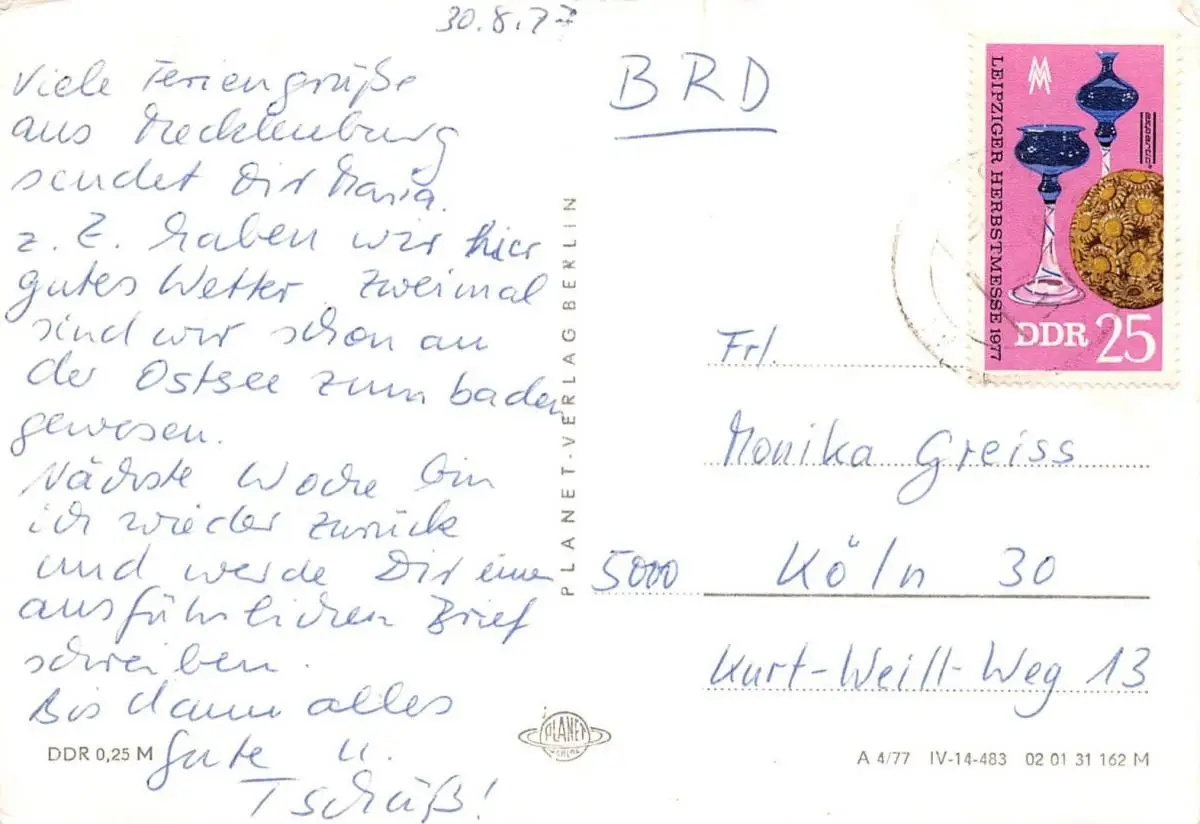 30.8.77
Viele Feriengrüße
aus Mecklenburg
sendet Dir Maria.
z. Z. haben wir hier
gutes Wetter. Zweimal
sind wir schon an
der Ostsee zum baden
gewesen.
Nächste Woche bin
ich wieder zurück
und werde Dir einen
ausführlichen Brief
schreiben.
Bis dann alles
Gute u.
Tschüß!
DDR 0,25 M
PLANET-VERLAG BERLIN
PLANET
BRD
LEIPZIGER HERBSTMESSE 1977
expertic
DDR 25
Frl.
Monika Greiss
5000 Köln 30
Kurt-Weill-Weg 13
A 4/77 IV-14-483 02 01 31 162 M